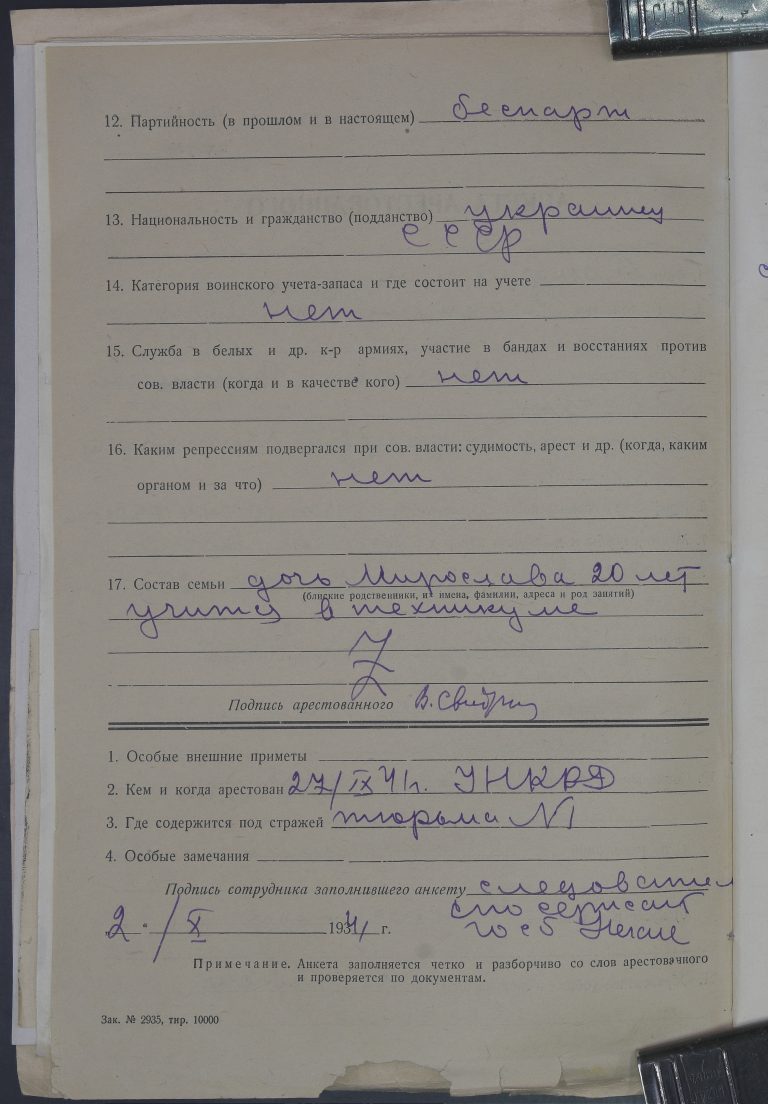 12. Партийность (в прошлом и в настоящем) беспарт
13. Национальность и гражданство (подданство) украинец
СССР
14. Категория воинского учета-запаса и где состоит на учете
нет
15. Служба в белых и др. к-р армиях, участие в бандах и восстаниях против
сов. власти (когда и в качестве кого) нет
16. Каким репрессиям подвергался при сов. власти: судимость, арест и др. (когда, каким
органом и за что) нет
17. Состав семьи дочь Мирослава 20 лет
(близкие родственники, их имена, фамилии, адреса и род занятий)
учится в техникуме
Z
Подпись арестованного В. Свидзин
1. Особые внешние приметы
2. Кем и когда арестован 27/IX 41 г. УНКВД
3. Где содержится под стражей тюрьма N1
4. Особые замечания
Подпись сотрудника заполнившего анкету следовател
сержант
"2" / X 1941 г. го с б
Примечание. Анкета заполняется четко и разборчиво со слов арестованного
и проверяется по документам.
Зак. № 2935, тир. 10000